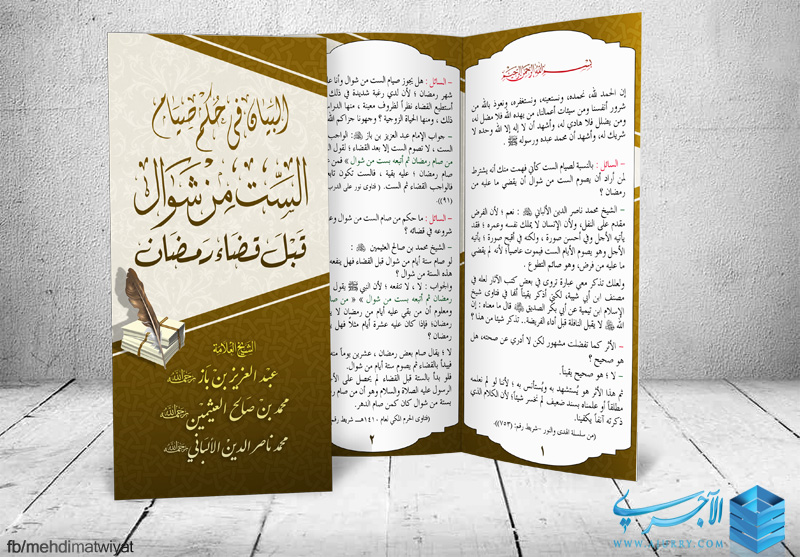 البيان في حكم صيام
الست من شوال
قبل قضاء رمضان
الشيخ العلامة
عبد العزيز بن باز رحمه الله
محمد بن صالح العثيمين رحمه الله
محمد ناصر الدين الألباني رحمه الله
بسم الله الرحمن الرحيم
إن الحمد لله، نحمده، ونستعينه، ونستغفره، ونعوذ بالله من
شرور أنفسنا ومن سيئات أعمالنا، من يهده الله فلا مضل له،
ومن يضلل فلا هادي له، وأشهد أن لا إله إلا الله وحده لا
شريك له، وأشهد أن محمد عبده ورسوله ﷺ .
– السائل : بالنسبة لصيام الست كأني فهمت منك أنه يشترط
لمن أراد أن يصوم الست من شوال أن يقضي ما عليه من
رمضان ؟
– الشيخ محمد ناصر الدين الألباني : نعم ؛ لأن الفرض
مقدم على النفل، ولأن الإنسان لا يملك نفسه وعمره ؛ فقد
يأتيه الأجل وفي أحسن صورة ، ولكنه في أقبح صورة ؛ يأتيه
الأجل وهو يصوم الأيام الست فيموت عاصياً؛ لأنه لم يقضي
ما عليه من فرض، وهو صائم التطوع .
ولعلك تذكر معي عبارة تروى في بعض كتب الآثار لعله في
مصنف ابن أبي شيبة، لكني أذكر يقيناً أنها في فتاوى شيخ
الإسلام ابن تيمية عن أبي بكر الصديق قال ما معناه : إن
الله لا يقبل النافلة قبل أداء الفريضة.. تذكر شيئا من هذا ؟
– الأثر كما تفضلت مشهور لكن لا أدري عن صحته، هل
هو صحيح ؟
– لا ؛ هو صحيح يقيناً.
ثم هذا الأثر هو يُستشهد به ويُستأنس به ؛ لأننا لو لم نعلمه
مطلقاً أو علمناه بسند ضعيف لم نخسر شيئاً؛ لأن الكلام الذي
ذكرته آنفاً يكفينا.
(من سلسلة الهدى والنور –شريط رقم: (٧٥٣)).
١
– السائل : هل يجوز صيام الست من شوال وأنا
شهر رمضان ؛ لأن لدي رغبة شديدة في ذلك
أستطيع القضاء نظراً لظروف معينة ، منها الدراسة
ذلك ، ومنها الحياة الزوجية ؟ وجهونا جزاكم الله
– جواب الإمام عبد العزيز بن باز : الواجب
الست ، لا نصوم الست إلا بعد القضاء ؛ لقول
من صام رمضان ثم أتبعه بست من شوال » فمن
صام رمضان ؛ عليه بقية ، فالست تكون تابعة
فالواجب القضاء ثم الست. ( فتاوى نور على الدرب
(٩١)).
– السائل : ما حكم من صام الست من شوال
شروعه في قضائه ؟
– الشيخ محمد بن صالح العثيمين :
لو صام ستة أيام من شوال قبل القضاء فهل ينفعه
هذه الستة من شوال ؟
والجواب : لا ، لا تنفعه ؛ لأن النبي ﷺ يقول
رمضان ثم أتبعه بست من شوال »
ومعلوم أن من بقي عليه أيام من رمضان لا
رمضان؛ فإذا كان عليه عشرة أيام مثلاً فهل
رمضان ؟
لا ؛ يقال صام بعض رمضان ، عشرين يوماً
فليبدأ بالقضاء ثم يصوم ستة أيام من شوال.
فلو بدأ بالستة قبل القضاء لم يحصل على
الرسول عليه الصلاة والسلام وهو أن من صام
بستة من شوال كان كمن صام الدهر.
(فتاوى الحرم المكي لعام ١٤١٠هـ
٢
الآجري
WWW.AJURRY.COM
fb/mehdimatwiyat